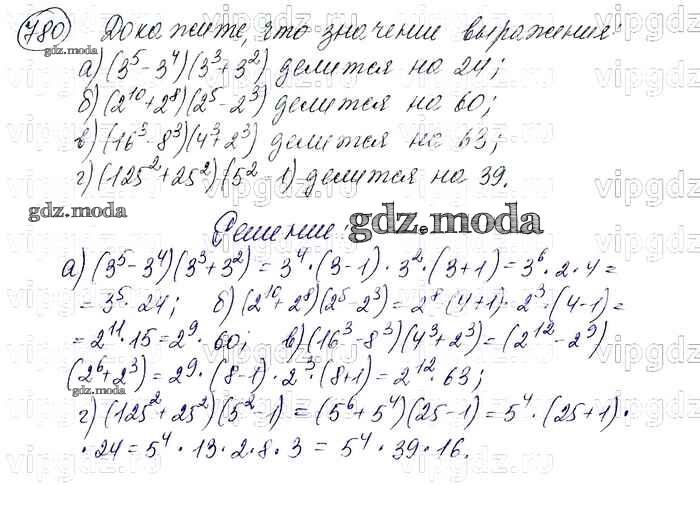 780 Докажите, что значение выражения:
gdz.moda
а) (3⁵-3⁴)(3³+3²) делится на 24;
б) (2¹⁰+2⁸)(2⁵-2³) делится на 60;
в) (16³-8³)(4³+2³) делится на 63;
г) (125²+25²)(5²-1) делится на 39.
gdz.moda
Решение: gdz.moda
а) (3⁵-3⁴)(3³+3²) = 3⁴·(3-1)·3²·(3+1) = 3⁶·2·4 =
= 3⁵·24; б) (2¹⁰+2⁸)(2⁵-2³) = 2⁸·(4+1)·2³·(4-1) =
= 2¹¹·15 = 2⁹·60; в) (16³-8³)(4³+2³) = (2¹²-2⁹)
(2⁶+2³) = 2⁹·(8-1)·2³·(8+1) = 2¹²·63;
gdz.moda
г) (125²+25²)(5²-1) = (5⁶+5⁴)(25-1) = 5⁴·(25+1)·
·24 = 5⁴·13·2·8·3 = 5⁴·39·16.